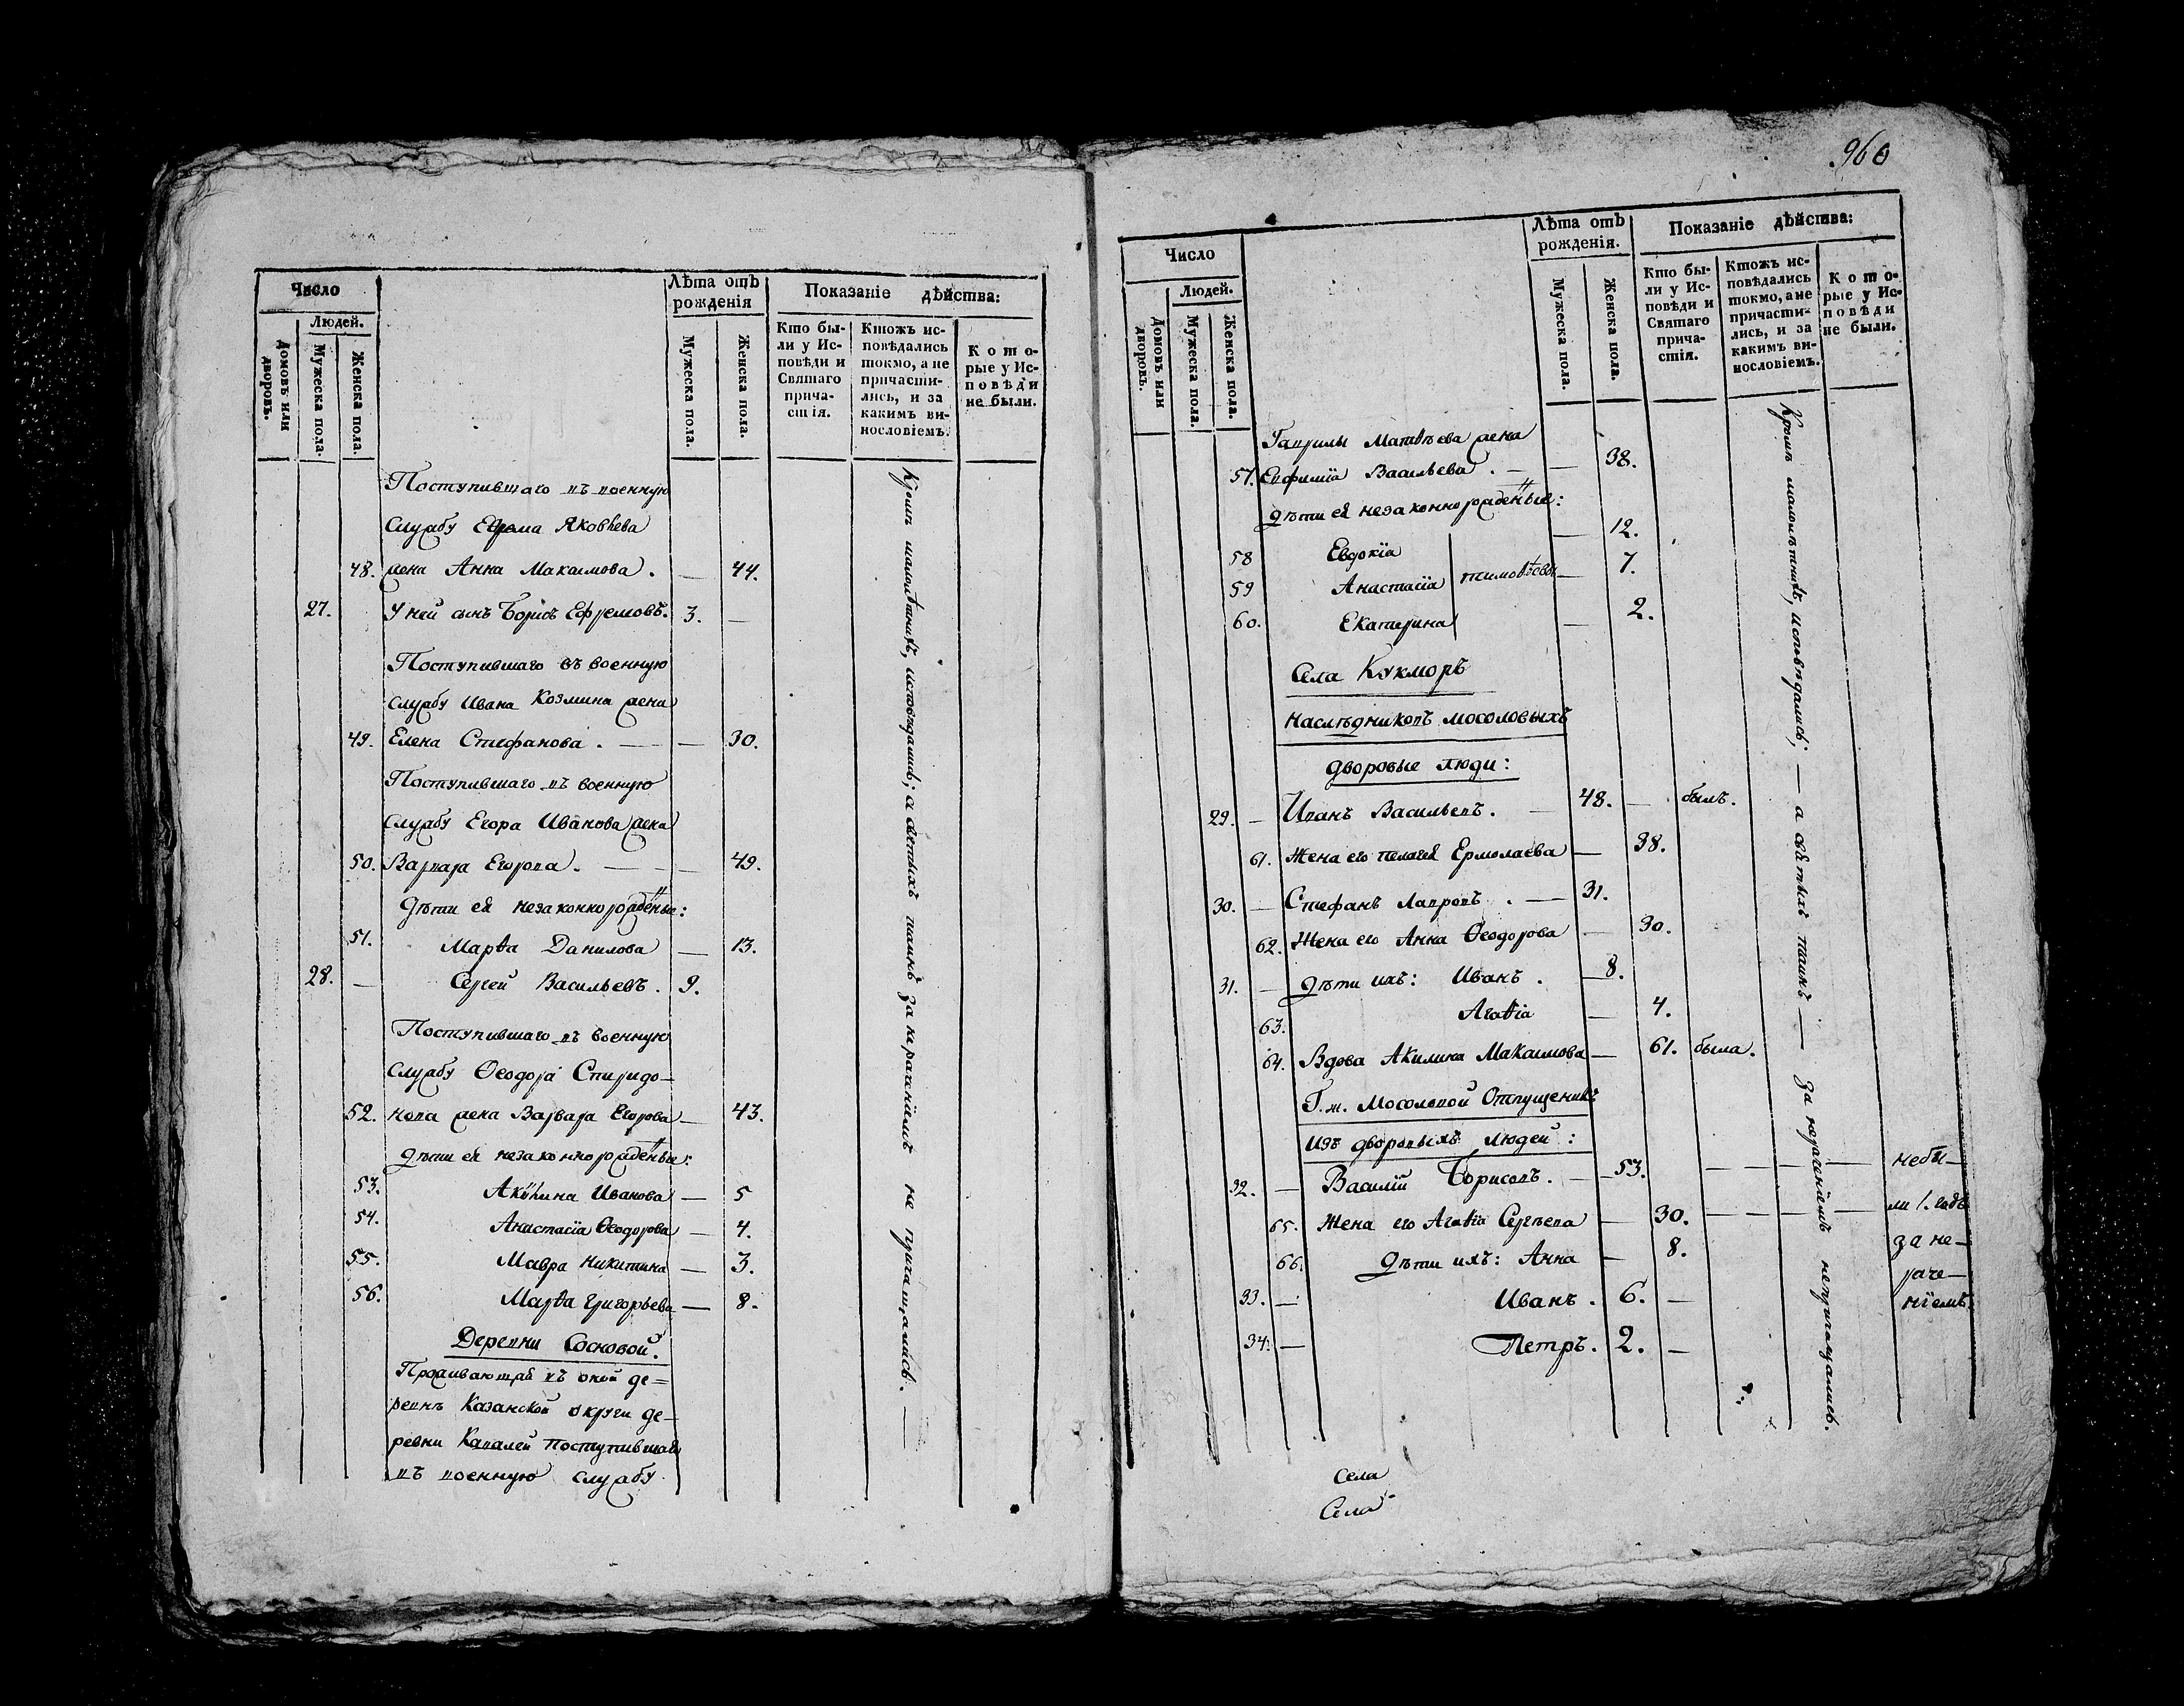 Число
Людей.
Домовъ или дворовъ.
Мужеска пола.
Женска пола.
Лѣта отъ рожденія
Мужеска пола.
Женска пола.
Показаніе дѣйства:
Кто бы-
ли у Ис-
повѣди и
Святаго
прича-
стія.
Ктожъ ис-
повѣдались
токмо, а не
причасти-
лись, и за
какимъ ви-
нословіемъ.
Кото-
рые у Ис-
повѣди
не были.
Поступившаго въ военную
службу Ефрема Яковлева
48. жена Анна Максимова. — 44.
27. У ней сынъ Борисъ Ефремовъ. 3. —
Поступившаго въ военную
службу Ивана Козмина жена
49. Елена Стефанова. — — 30.
Поступившаго въ военную
службу Егора Иванова жена
50. Варвара Егорова. — — 49.
Дѣти ея незаконнорожденные:
51. Марѳа Данилова — 13.
28. — Сергей Васильевъ. 9.
Поступившаго въ военную
службу Ѳеодора Спиридо-
52. нова жена Варвара Егорова — 43.
Дѣти ея незаконнорожденные:
53. Акилина Иванова — 5
54. Анастасіа Ѳеодорова — 4.
55. Мавра Никитина — 3.
56. Марѳа Григорьева — 8.
Деревни Сосновой.
Проживающая въ оной де=
ревнѣ Казанской округи де-
ревни Кавалей поступившаго
въ военную службу
Кромѣ малолѣтныхъ, исповѣдались; а святыхъ таинъ за нераченіемъ не причащались. —
960
Число
Людей.
Домовъ или дворовъ.
Мужеска пола.
Женска пола.
Лѣта отъ рожденія.
Мужеска пола.
Женска пола.
Показаніе дѣйства:
Кто бы-
ли у Ис-
повѣди и
Святаго
прича-
стія.
Ктожъ ис-
повѣдались
токмо, а не
причасти-
лись, и за
какимъ ви-
нословіемъ.
Кото-
рые у Ис-
повѣди
не были.
Гаврилы Матвѣева жена
57. Евфиміа Васильева. — — 38.
Дѣти ея незаконнорожденные:
58 Евдокіа — 12.
59 Анастасіа Тимоѳѣевы — 7.
60. Екатерина — 2.
Села Кукморъ
наслѣдниковъ Мосоловыхъ
дворовые люди:
29. — Иванъ Васильевъ. — 48. — былъ.
61. Жена его Пелагея Ермолаева — 38.
30. — Стефанъ Лавровъ. — 31.
62. Жена его Анна Ѳеодорова — 30.
31. — Дѣти ихъ: Иванъ. — 8.
63. Агаѳіа — 4.
64. Вдова Акилина Максимова — 61. была.
Г. ж. Мосоловой Отпущеникъ
изъ дворовыхъ людей:
32. — Василій Борисовъ. — 53. — — — — небы-
65. Жена его Агаѳіа Сергѣева — 30. — — — — ли 1. годъ
66. Дѣти ихъ: Анна — 8. за не-
раче-
33. — Иванъ. 6. — ніемъ
34. — Петръ. 2. —
Кромѣ малолѣтныхъ, исповѣдались; — а святыхъ таинъ — за нераченіемъ непричащались.
Села
Села